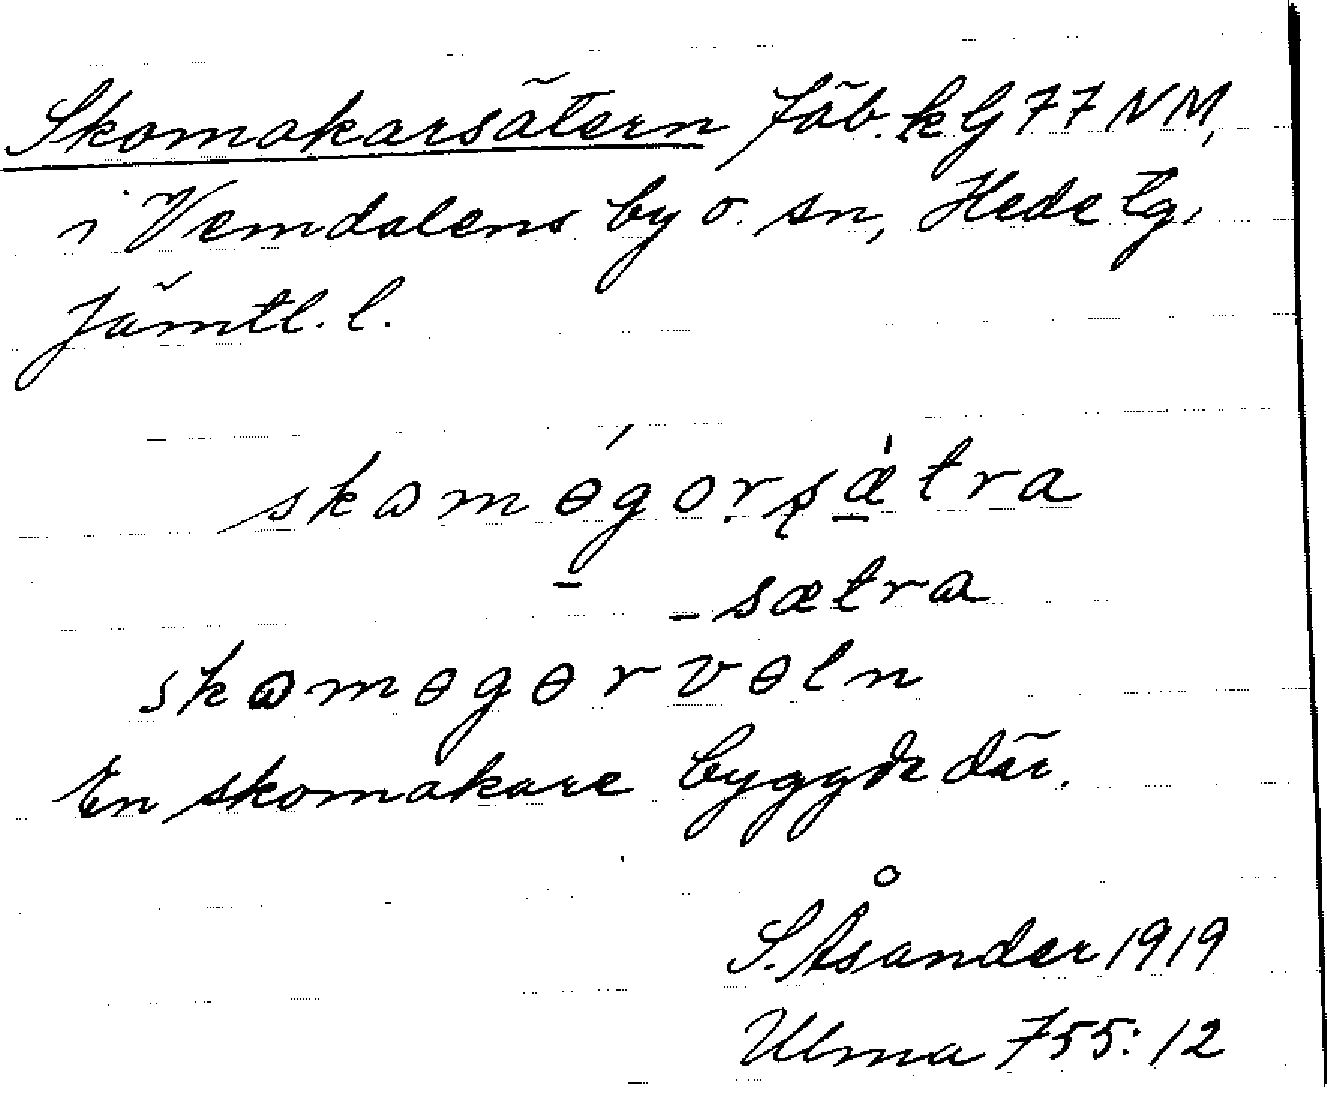 Skomakarsätern fäb. k G 77 NM,
i Vemdalens by o. sn, Hede tg,
Jämtl. l.
skɷmɵ́gorsæ̀tra
-sætra
skɷmɵgɵrvɵln
En skomakare byggde där.
S. Åsander 1919
Ulma 755:12